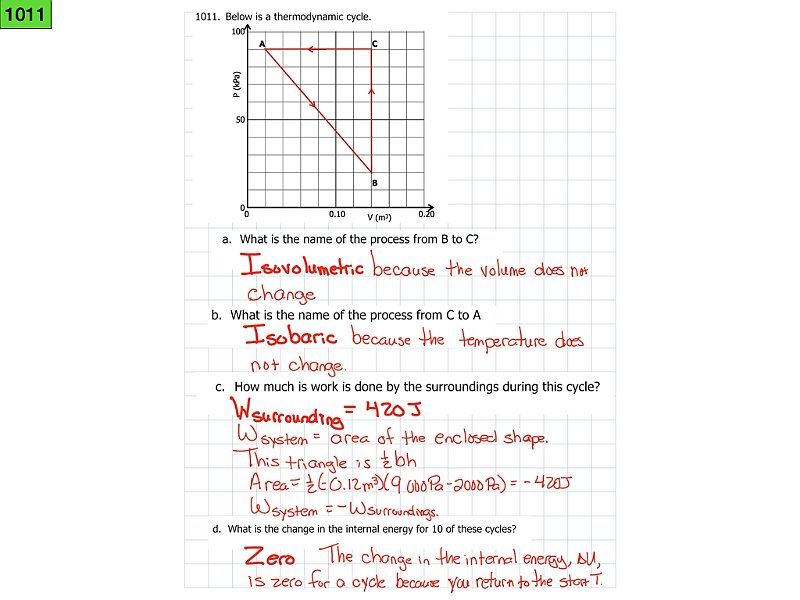 1011
1011. Below is a thermodynamic cycle.
100
A
C
P (kPa)
50
B
0
0
0.10
V (m³)
0.20
a. What is the name of the process from B to C?
Isovolumetric because the volume does not
change
b. What is the name of the process from C to A
Isobaric because the temperature does
not change.
c. How much is work is done by the surroundings during this cycle?
Wsurrounding = 420J
Wsystem = area of the enclosed shape.
This triangle is ½bh
Area = ½(-0.12m³)(9 000Pa-2000Pa) = -420J
Wsystem = -Wsurroundings.
d. What is the change in the internal energy for 10 of these cycles?
Zero The change in the internal energy, ΔU,
is zero for a cycle because you return to the start T.